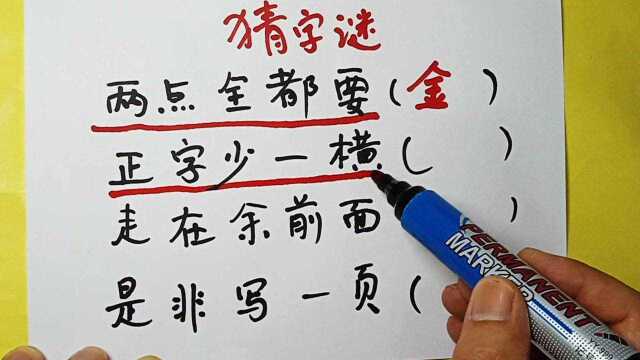 猜字谜
两点全都要(金 )
正字少一横( )
走在余前面 )
是非写一页(
PERMANENT
MARKER